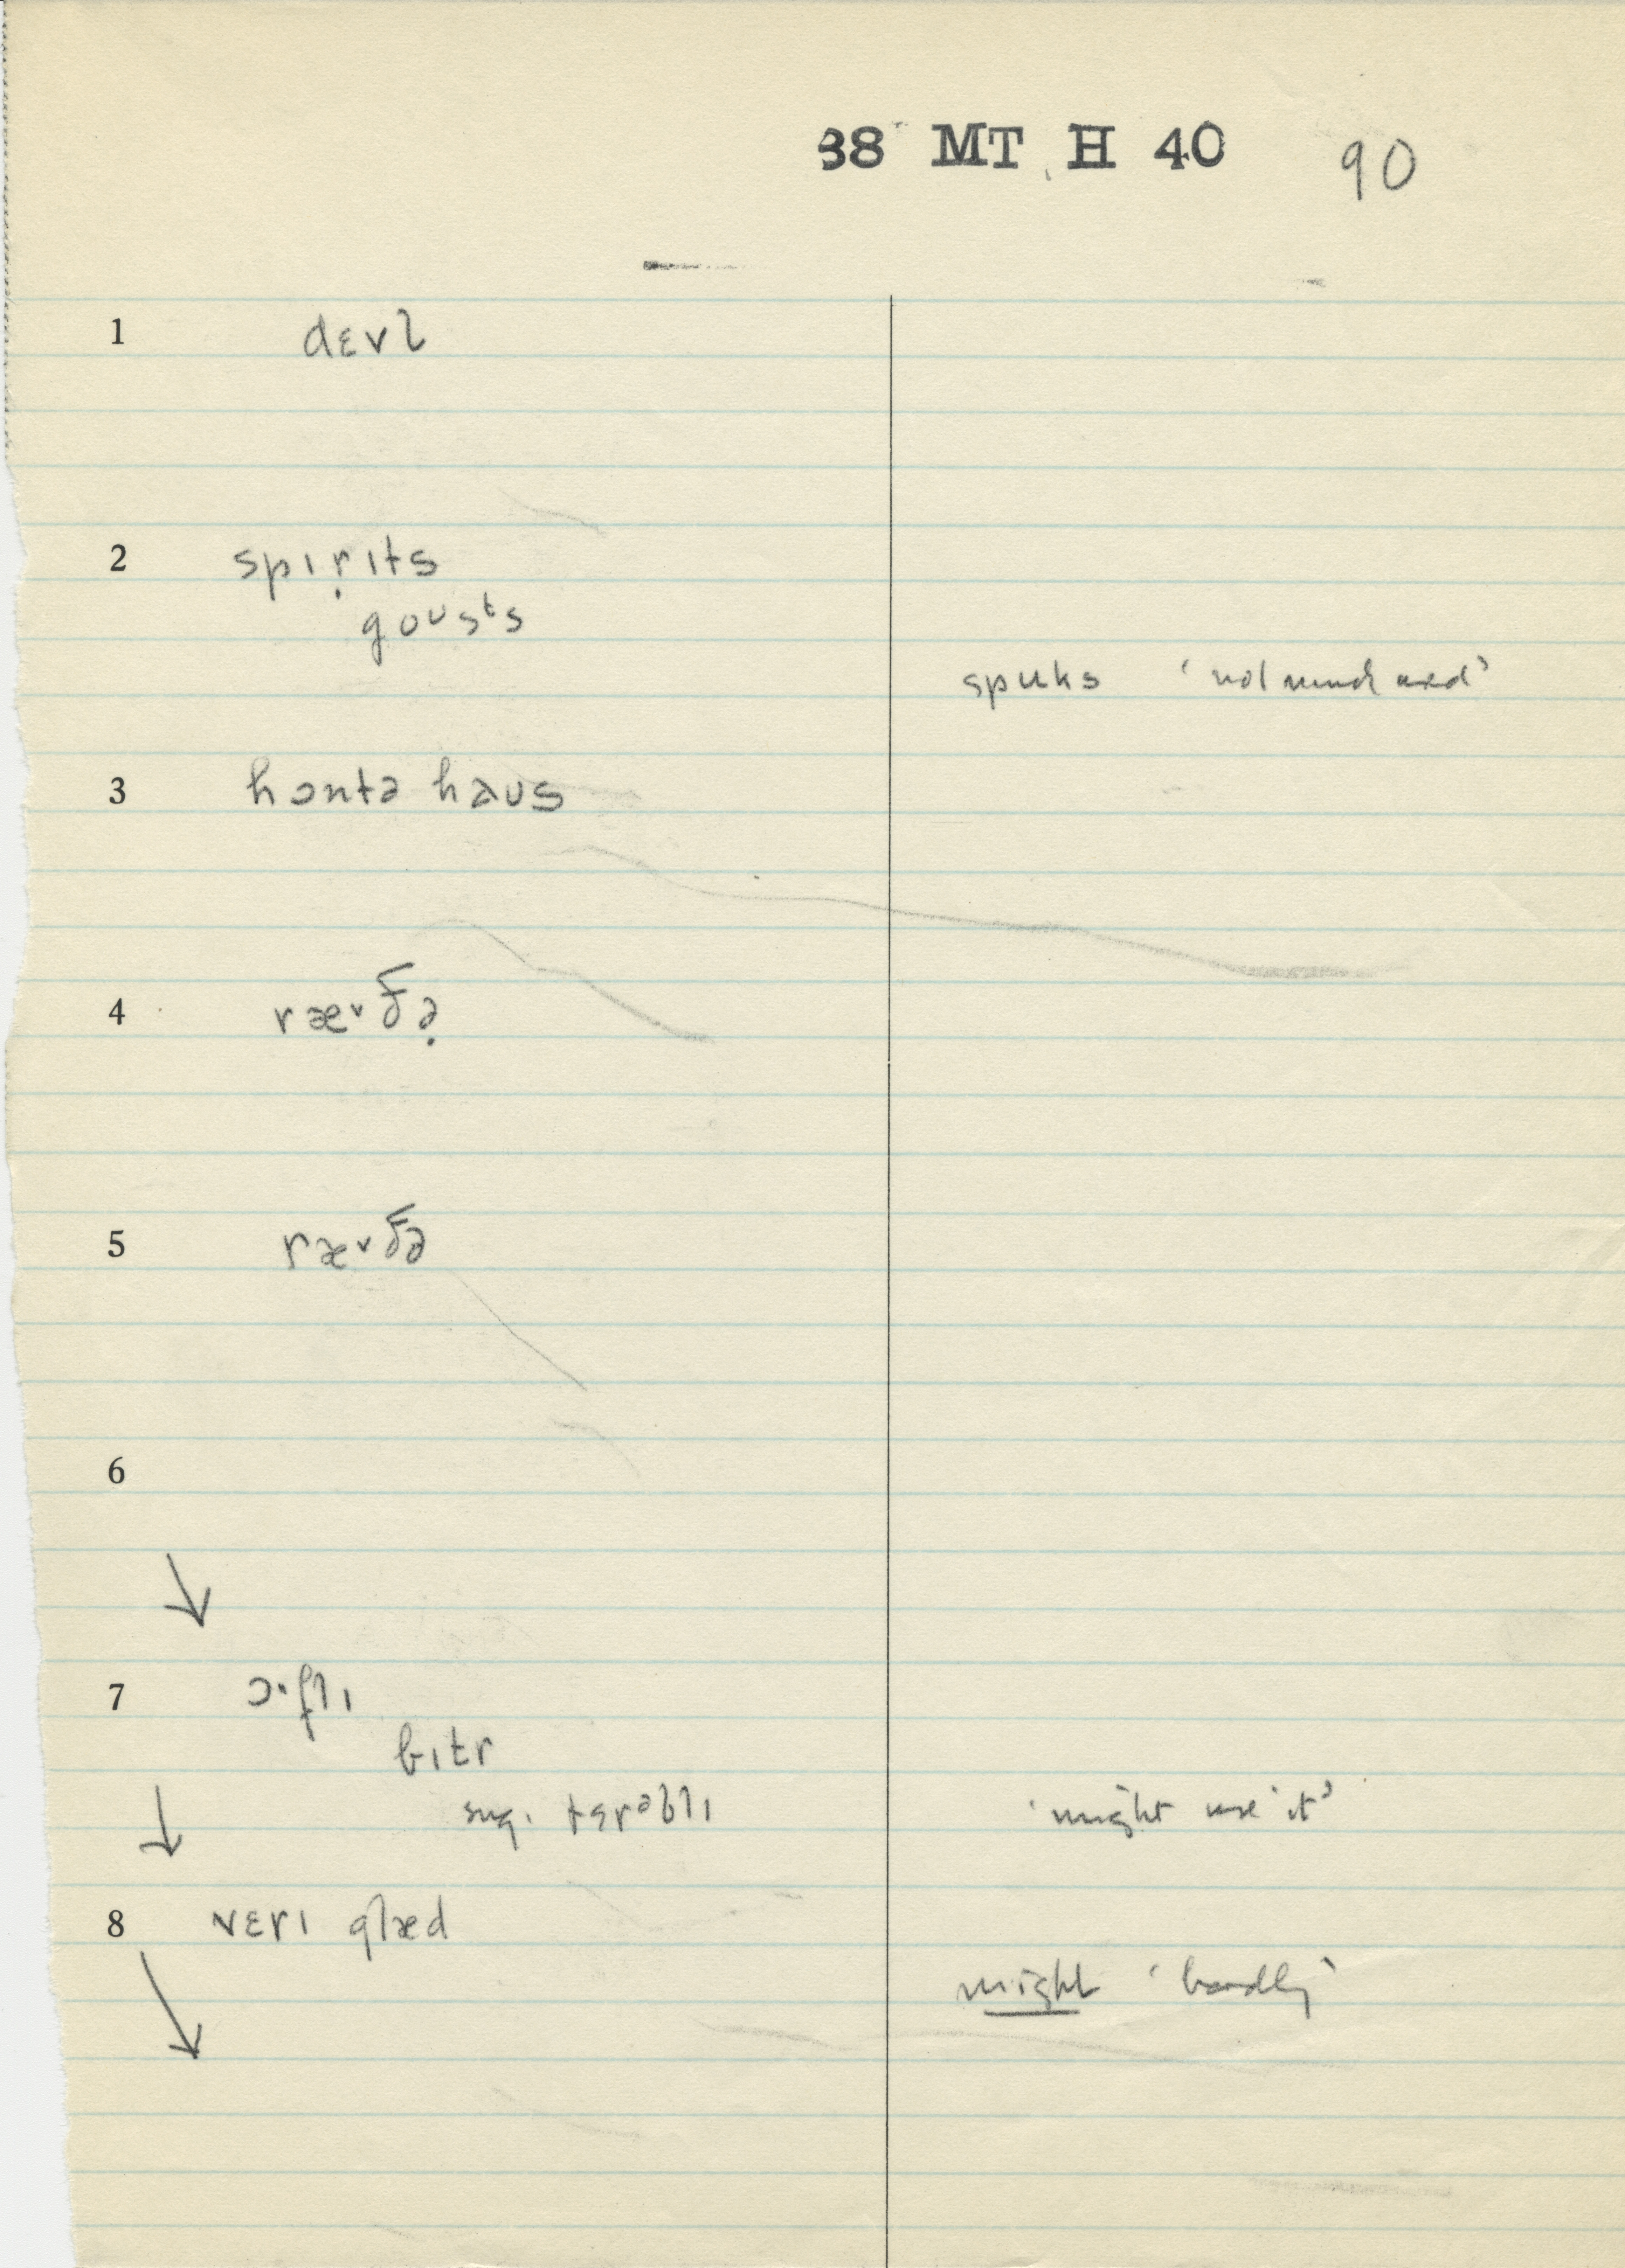 38 MT H 40 90
1 dɛvl
2 spɪṛɪts
goʊsts
spuks ‘not much used’
3 hɔntə haʊs
4 ræ˅ðə̣
5 ræ˅ðə
6
7 ɔ·flɪ
bɪtr
sug. tɛrəblɪ ‘might use it’
8 vɛrɪ glæd
might ‘hardly’